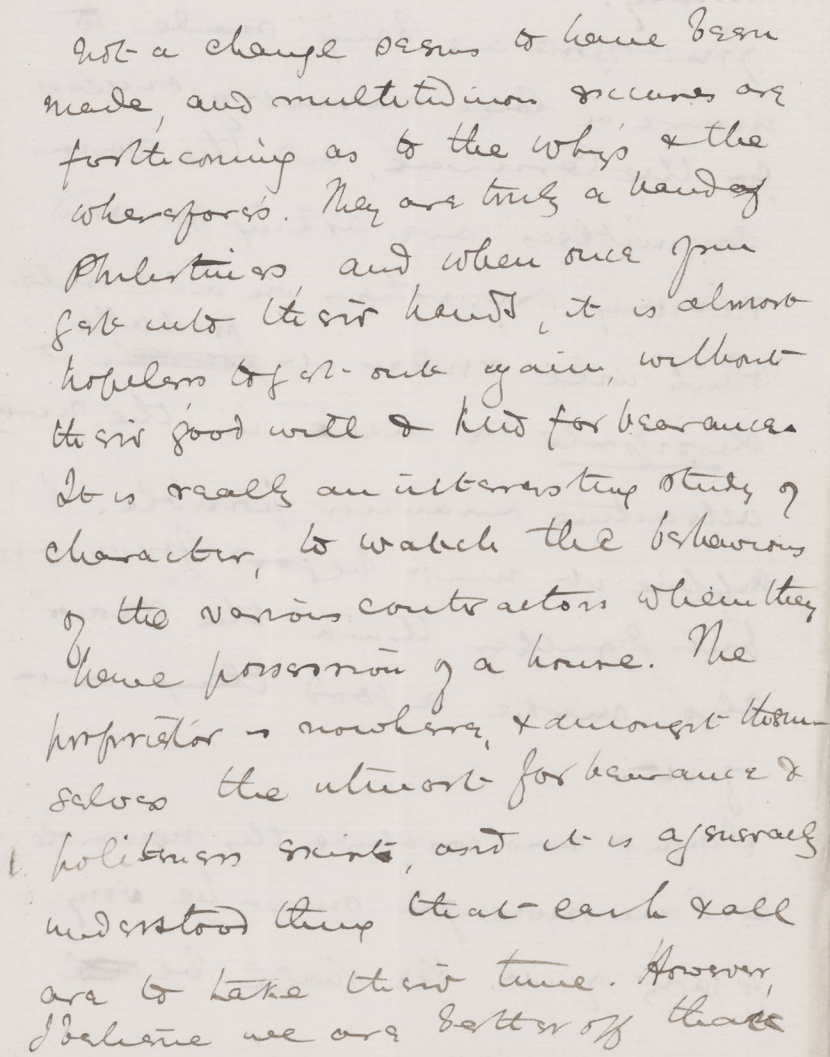 not a change seems to have been
made, and multitudinous excuses are
forthcoming as to the why's & the
wherefores. They are truly a band of
Philistines, and when once you
get into their hands, it is almost
hopeless to get out again, without
their good will & kind forbearance.
It is really an interesting study of
character, to watch the behaviour
of the various contractors when they
have possession of a house. The
proprietor is nowhere, & amongst them
selves the utmost forbearance &
politeness exists, and it is a generally
understood thing that each & all
are to take their time. However,
I believe we are better off than